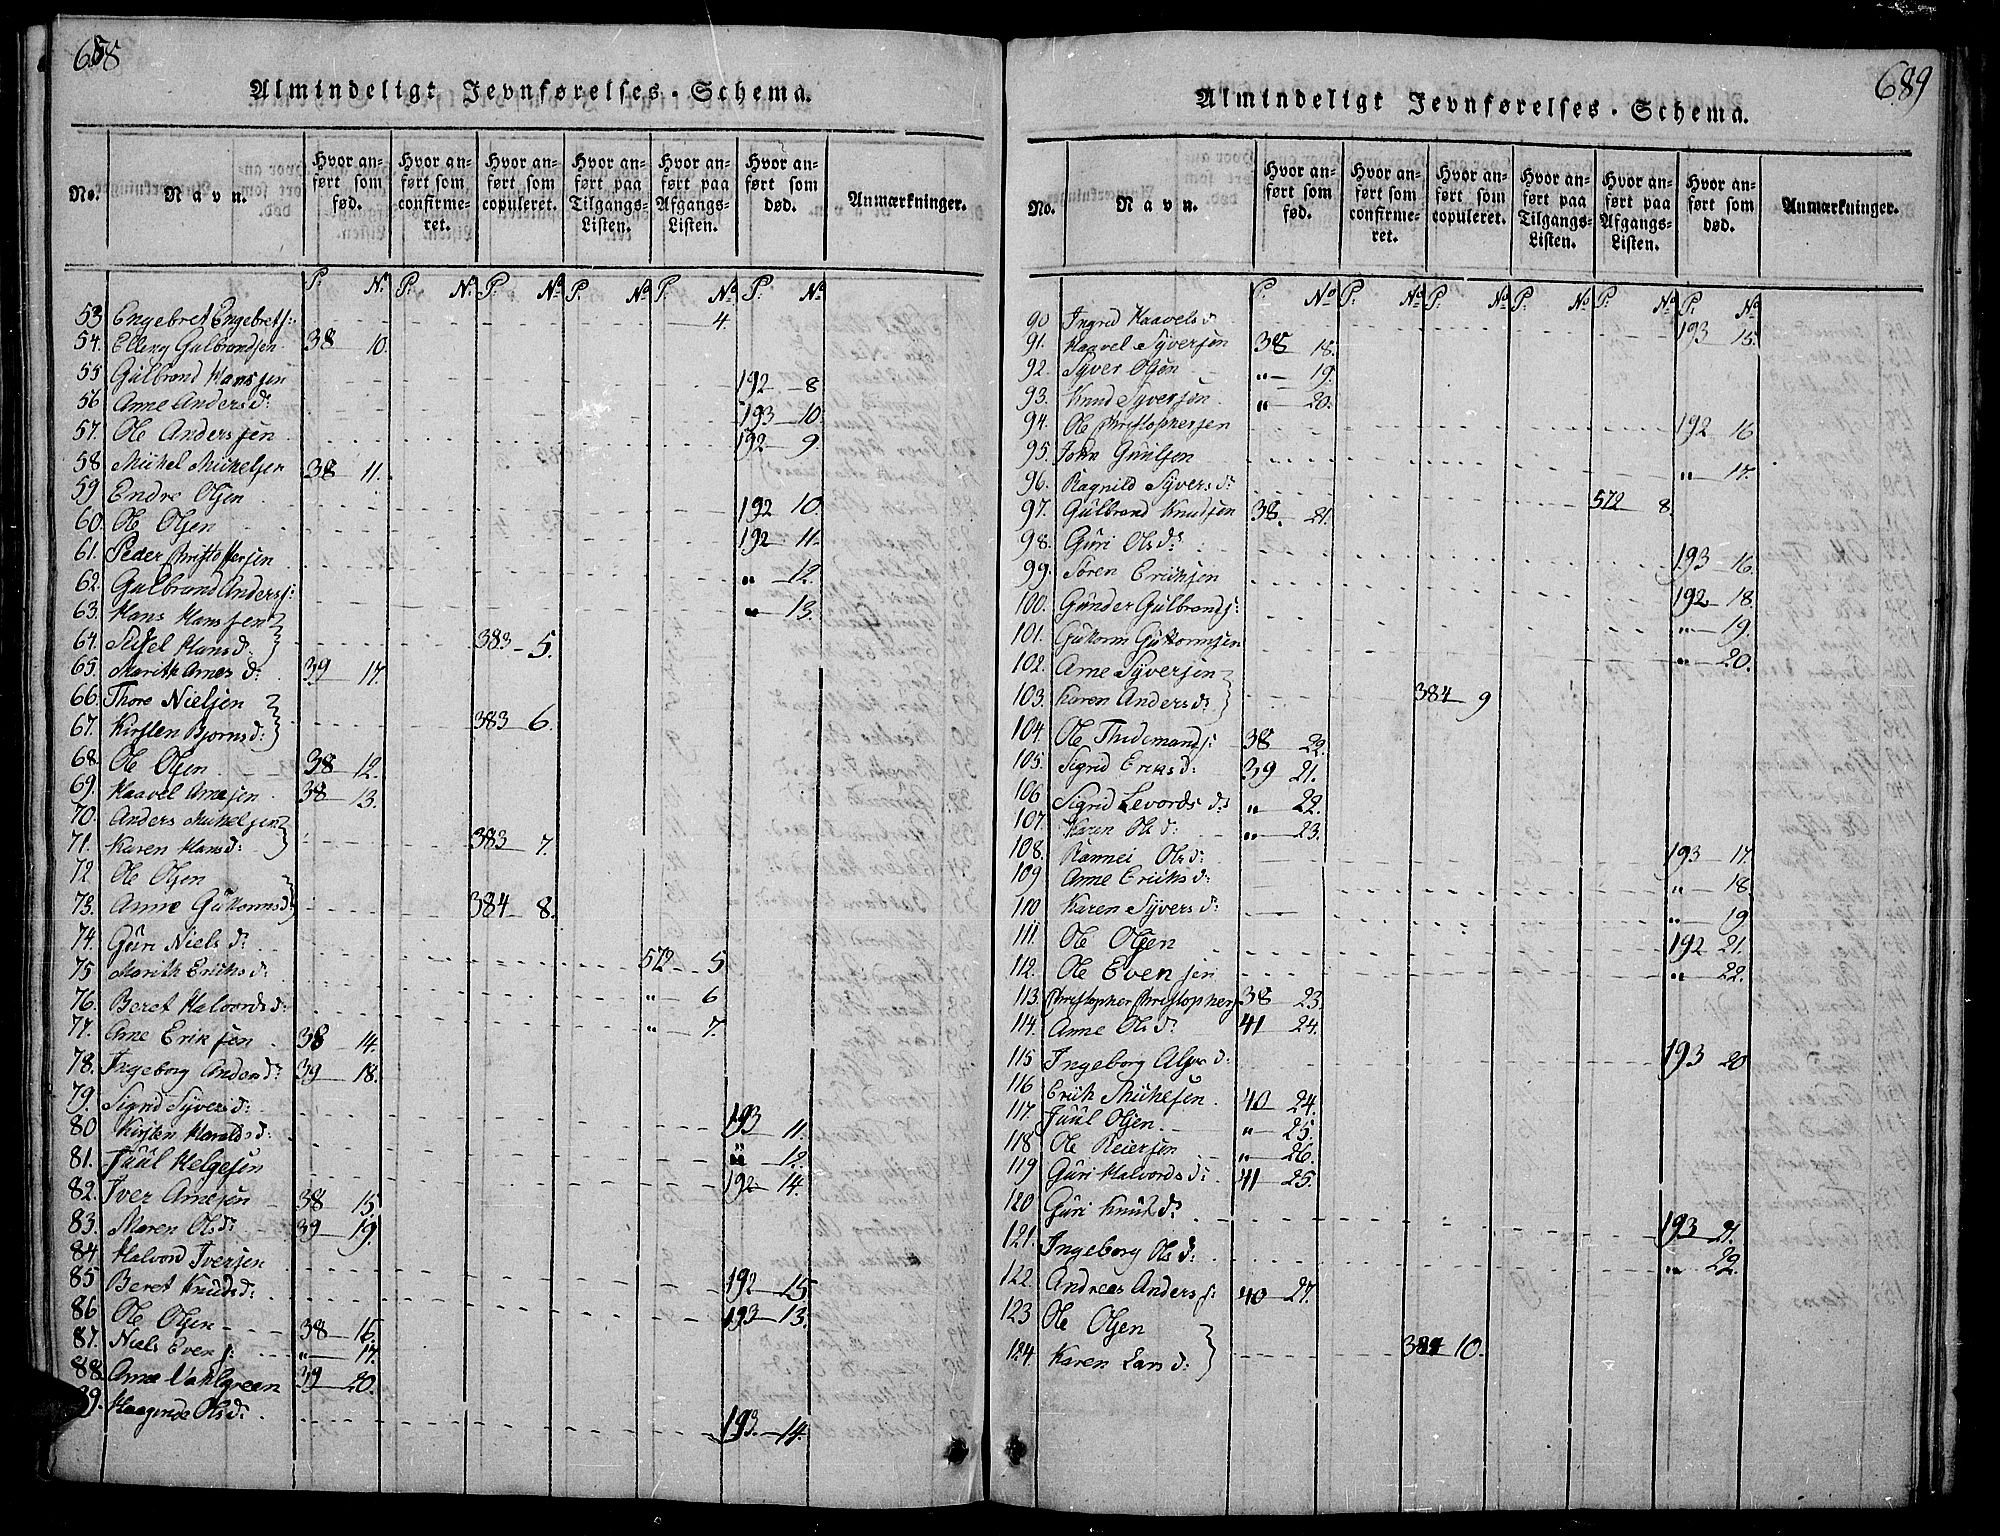 658
Almindeligt Jevnførelses-Schema.
No.
Navn.
Hvor anført som fød.
Hvor anført som confirmeret.
Hvor anført som copuleret.
Hvor anført paa Tilgangs-Listen.
Hvor anført paa Afgangs-Listen.
Hvor anført som død.
Anmærkninger.
P. No. P. No. P. No. P. No. P. No. P. No.
53 Engebret Engebrets: 4.
54. Elleng Gulbrandsen 38 10.
55 Gulbrand Hanssen 192 8
56 Anne Andersd: 193 10.
57. Ole Anderssen 192 9.
58 Mikel Mikelsen 38 11.
59 Endre Olsen 192 10.
60. Ole Olsen 192 11.
61. Peder Christophersen " 12.
62. Gulbrand Anders: " 13.
63. Hans Hanssen
64. Hansd: 383 5.
65. Marith Arnesd: 39 17.
66. Thore Nielsen
67. Kirsten Bjornsd: 383 6.
68. Ole Olsen 38 12.
69. Haavel Arnesen 38 13.
70. Anders Mikelsen
71. Karen Hansd: 383 7.
72 Ole Olsen
73. Anne Guttormsd: 384 8.
74. Guri Nielsd: 572 5
75. Marith Eriksd: " 6
76. Beret Halvordsd: " 7.
77. Arne Eriksen 38 14.
78. Ingeborg Andersd: 39 18.
79. Sigrid Syversd: 193 11.
80 Kirsten Haraldsd: " 12.
81. Juul Helgesen 192 14.
82. Iver Arnesen 38 15.
83. Maren Olsd: 39 19.
84. Halvord Iversen 192 15
85. Beret Knudsd: 193 13.
86 Ole Olsen 38 16.
87. Niels Evens: " 17.
88. Anne Vahlgreen 39 20.
89. Haagende Olsd: 193 14.
689
Almindeligt Jevnførelses-Schema.
No.
Navn.
Hvor anført som fød.
Hvor anført som confirmeret.
Hvor anført som copuleret.
Hvor anført paa Tilgangs-Listen.
Hvor anført paa Afgangs-Listen.
Hvor anført som død.
Anmærkninger.
P. No P. No P. No P. No P. No P. No
90 Ingrid Haavelsd 193 15.
91. Haavel Syversen 38 18.
92. Syver Olsen " 19.
93. Knud Syversen " 20.
94. Ole Christophersen 192 16
95. John " 17.
96. Ragnild Syversd: 572 8.
97. Gulbrand Knudsen 38. 21.
98. Guri Olsd: 193 16.
99. Søren Eriksen 192 18.
100. Gunder Gulbrands: " 19.
101. Guttorm Guttormsen " 20.
102. Arne Syversen
103. Karen Andersd: 384 9
104. Ole Thidemands: 38 22.
105. Sigrid Eriksd: 39 21.
106 Sigrid Levordsd: " 22.
107. Karen Olsd: " 23.
108. Rannei Olsd: 193 17.
109 Anne Eriksd: " 18.
110 Karen Syversd: " 19
111. Ole Olsen 192 21.
112. Ole Evensen " 22.
113. Christopher Christophers 38 23.
114. Anne Olsd: 41 24.
115 Ingeborg d: 193 20
116 Erich Mikelsen 40 24.
117. Juul Olsen " 25.
118 Ole Reiersen " 26.
119 Guri Halvordsd: 41 25.
120 Guri Knutd: 193 21.
121. Ingeborg Olsd: " 22.
122. Andreas Anders: 40 27.
123 Ole Olsen
124. Karen Larsd: 384 10.